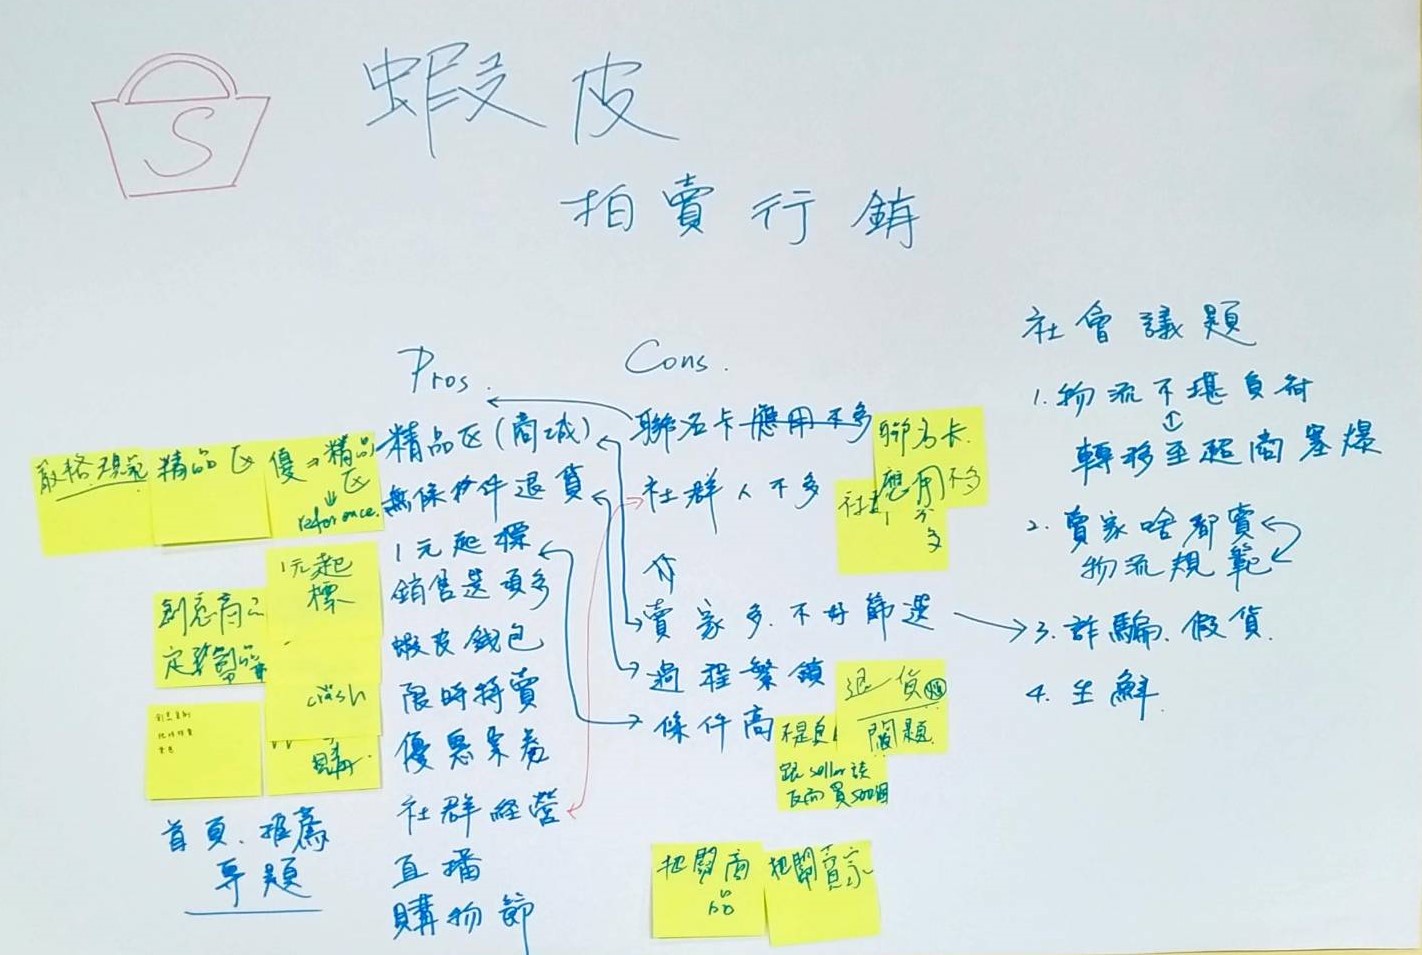 S
蝦皮
拍賣行銷
Pros.
精品区(商城)
無條件退貨
1元起標
銷售選項多
蝦皮錢包
限時特賣
優惠票券
社群經營
直播
購物節
Cons.
聯名卡應用不多
社群人不多
賣家多.不好篩選
過程繁鎖
條件高
社會議題
1.物流不堪負荷
↕
轉移至超商塞爆
2.賣家啥都賣
物流規範
3.詐騙.假貨.
4.生鮮.
嚴格規範
精品区
優⇒精品
区
⇓
reference.
1元起
標
創意商品
購
聯名卡.
應用不多
社
退貨
問題.
跟seller談
反而買
把關商
品
把關賣家
首頁.推薦
專題